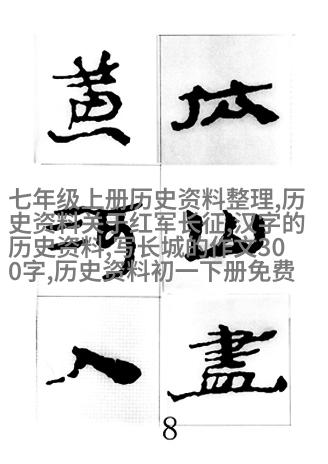 依山盡
黄河入
七年级上册历史资料整理,历
史资料关于红军长征,汉字的
历史资料,写长城的作文30
0字,历史资料初一下册免费
8